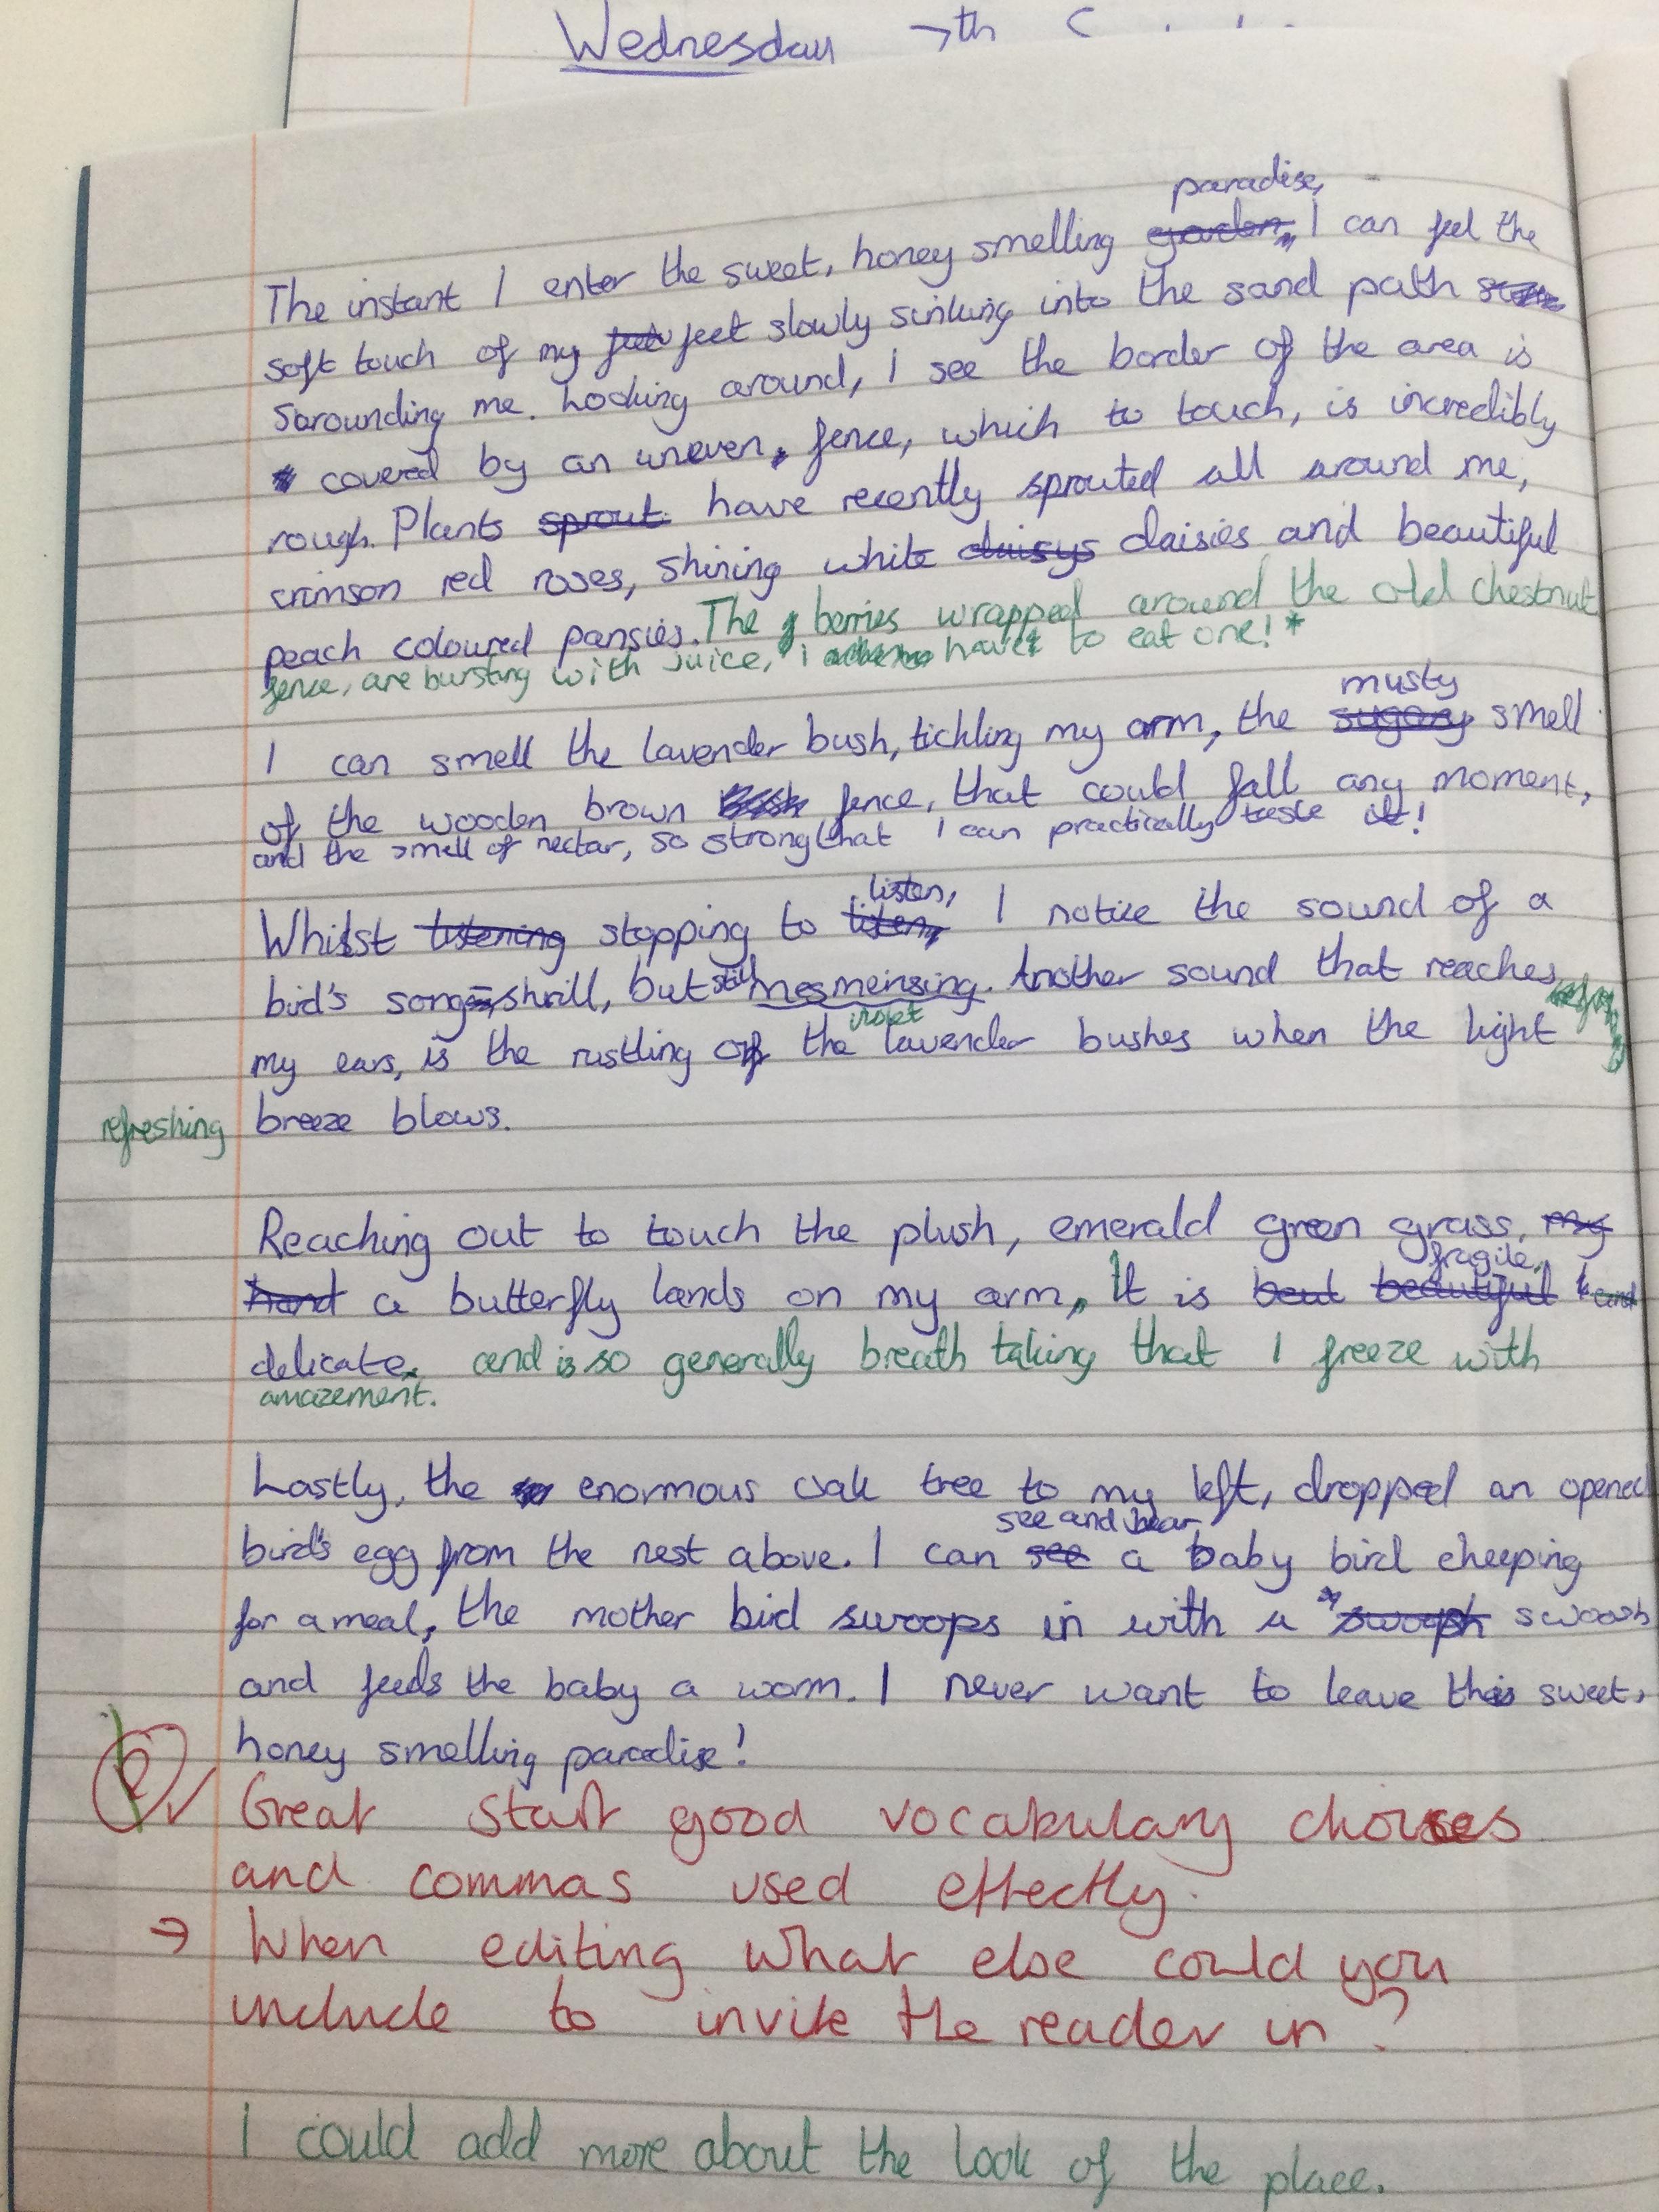 Wednesday 7th
paradise,
The instant I enter the sweet, honey smelling garden, I can feel the
soft touch of my feet slowly sinking into the sand path
sorounding me. Looking around, I see the border of the area is
covered by an uneven, fence, which to touch, is incredibly
rough. Plants sprout have recently sprouted all around me,
crimson red roses, shining white daisys daisies and beautiful
peach coloured pansies. The berries wrapped around the old chestnut
fence, are bursting with juice, i have to eat one! *
musty
I can smell the lavender bush, tickling my arm, the sugary smell
of the wooden brown fence, that could fall any moment,
and the smell of nectar, so strong that I can practically taste it!
listen,
Whilst listening stopping to listen, I notice the sound of a
bird's song, shrill, but still mesmerising. Another sound that reaches
violet
my ears, is the rustling of the lavender bushes when the light
refreshing breeze blows.
Reaching out to touch the plush, emerald green grass, my
fragile,
hand a butterfly lands on my arm, It is beut beautiful and
delicate, and is so generally breath taking that I freeze with
amazement.
Lastly, the enormous oak tree to my left, dropped an opened
see and hear
bird's egg from the nest above. I can see a baby bird cheeping
for a meal, the mother bird swoops in with a swoosh
and feeds the baby a worm. I never want to leave this sweet,
honey smelling paradise!
Great start good vocabulary choices
and commas used effectly.
→ When editing what else could you
include to invite the reader in?
I could add more about the look of the place.